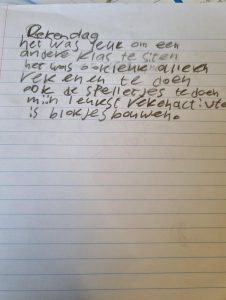 Rekendag
het was leuk om een
andere klas te siten
het was ook leuk alleen
rekenen te doen
ook de spelletjes te doen
mijn leukst rekenactivite
is blokjes bouwen.